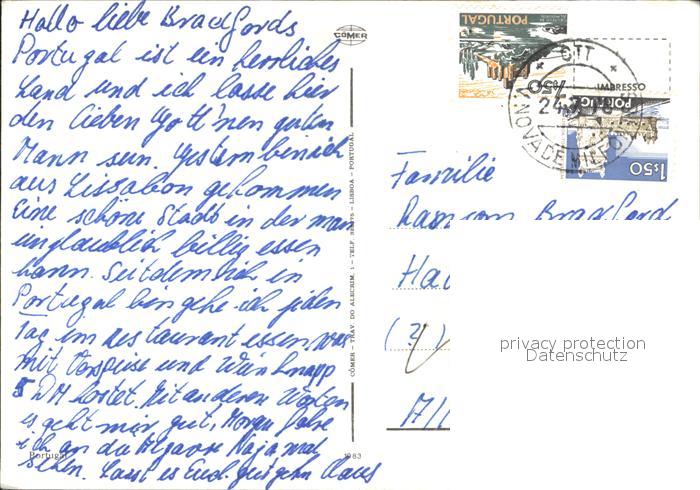 Hallo liebe Bradfords
Portugal ist ein herrliches
Land und ich lasse hier
den lieben Gott 'nen guten
Mann sein. Gestern bin ich
aus Lissabon gekommen
Eine schöne Stadt in der man
unglaublich billig essen
kann. Seitdem ich in
Portugal bin gehe ich jeden
Tag ins Restaurant essen, was
mit Vorspeise und Wein knapp
5 DM kostet. Mit anderen Worten
es geht mir gut. Morgen fahre
ich an die Algarve. Naja mal
sehen. Lasst es Euch gut gehn Claus
Portugal
1983
CÓMER
CÓMER — TRAV. DO ALECRIM, 1 — TELF. — LISBOA - PORTUGAL
PORTUGAL
7$50
CTT
IMBRESSO
24
PORTUGAL
1$50
Familie
Bradford
(?)
privacy protection
Datenschutz